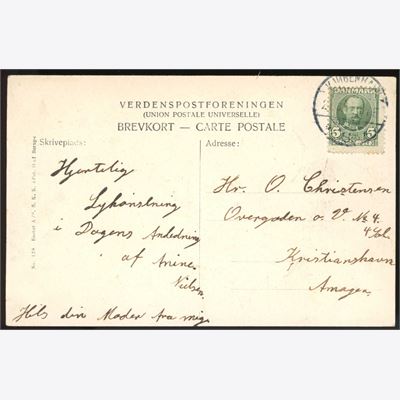 VERDENSPOSTFORENINGEN
(UNION POSTALE UNIVERSELLE)
BREVKORT — CARTE POSTALE
Skriveplads:
Adresse:
KJØBENHAVN
5 5
Hjertelig
Lykønskning
i Dagens Anledning
af Anine
Nielsen
Hils din Moder fra mig.
Hr. O. Christensen
Overgaden o. V. No 4.
4 Sal.
Kristianshavn
Amager.